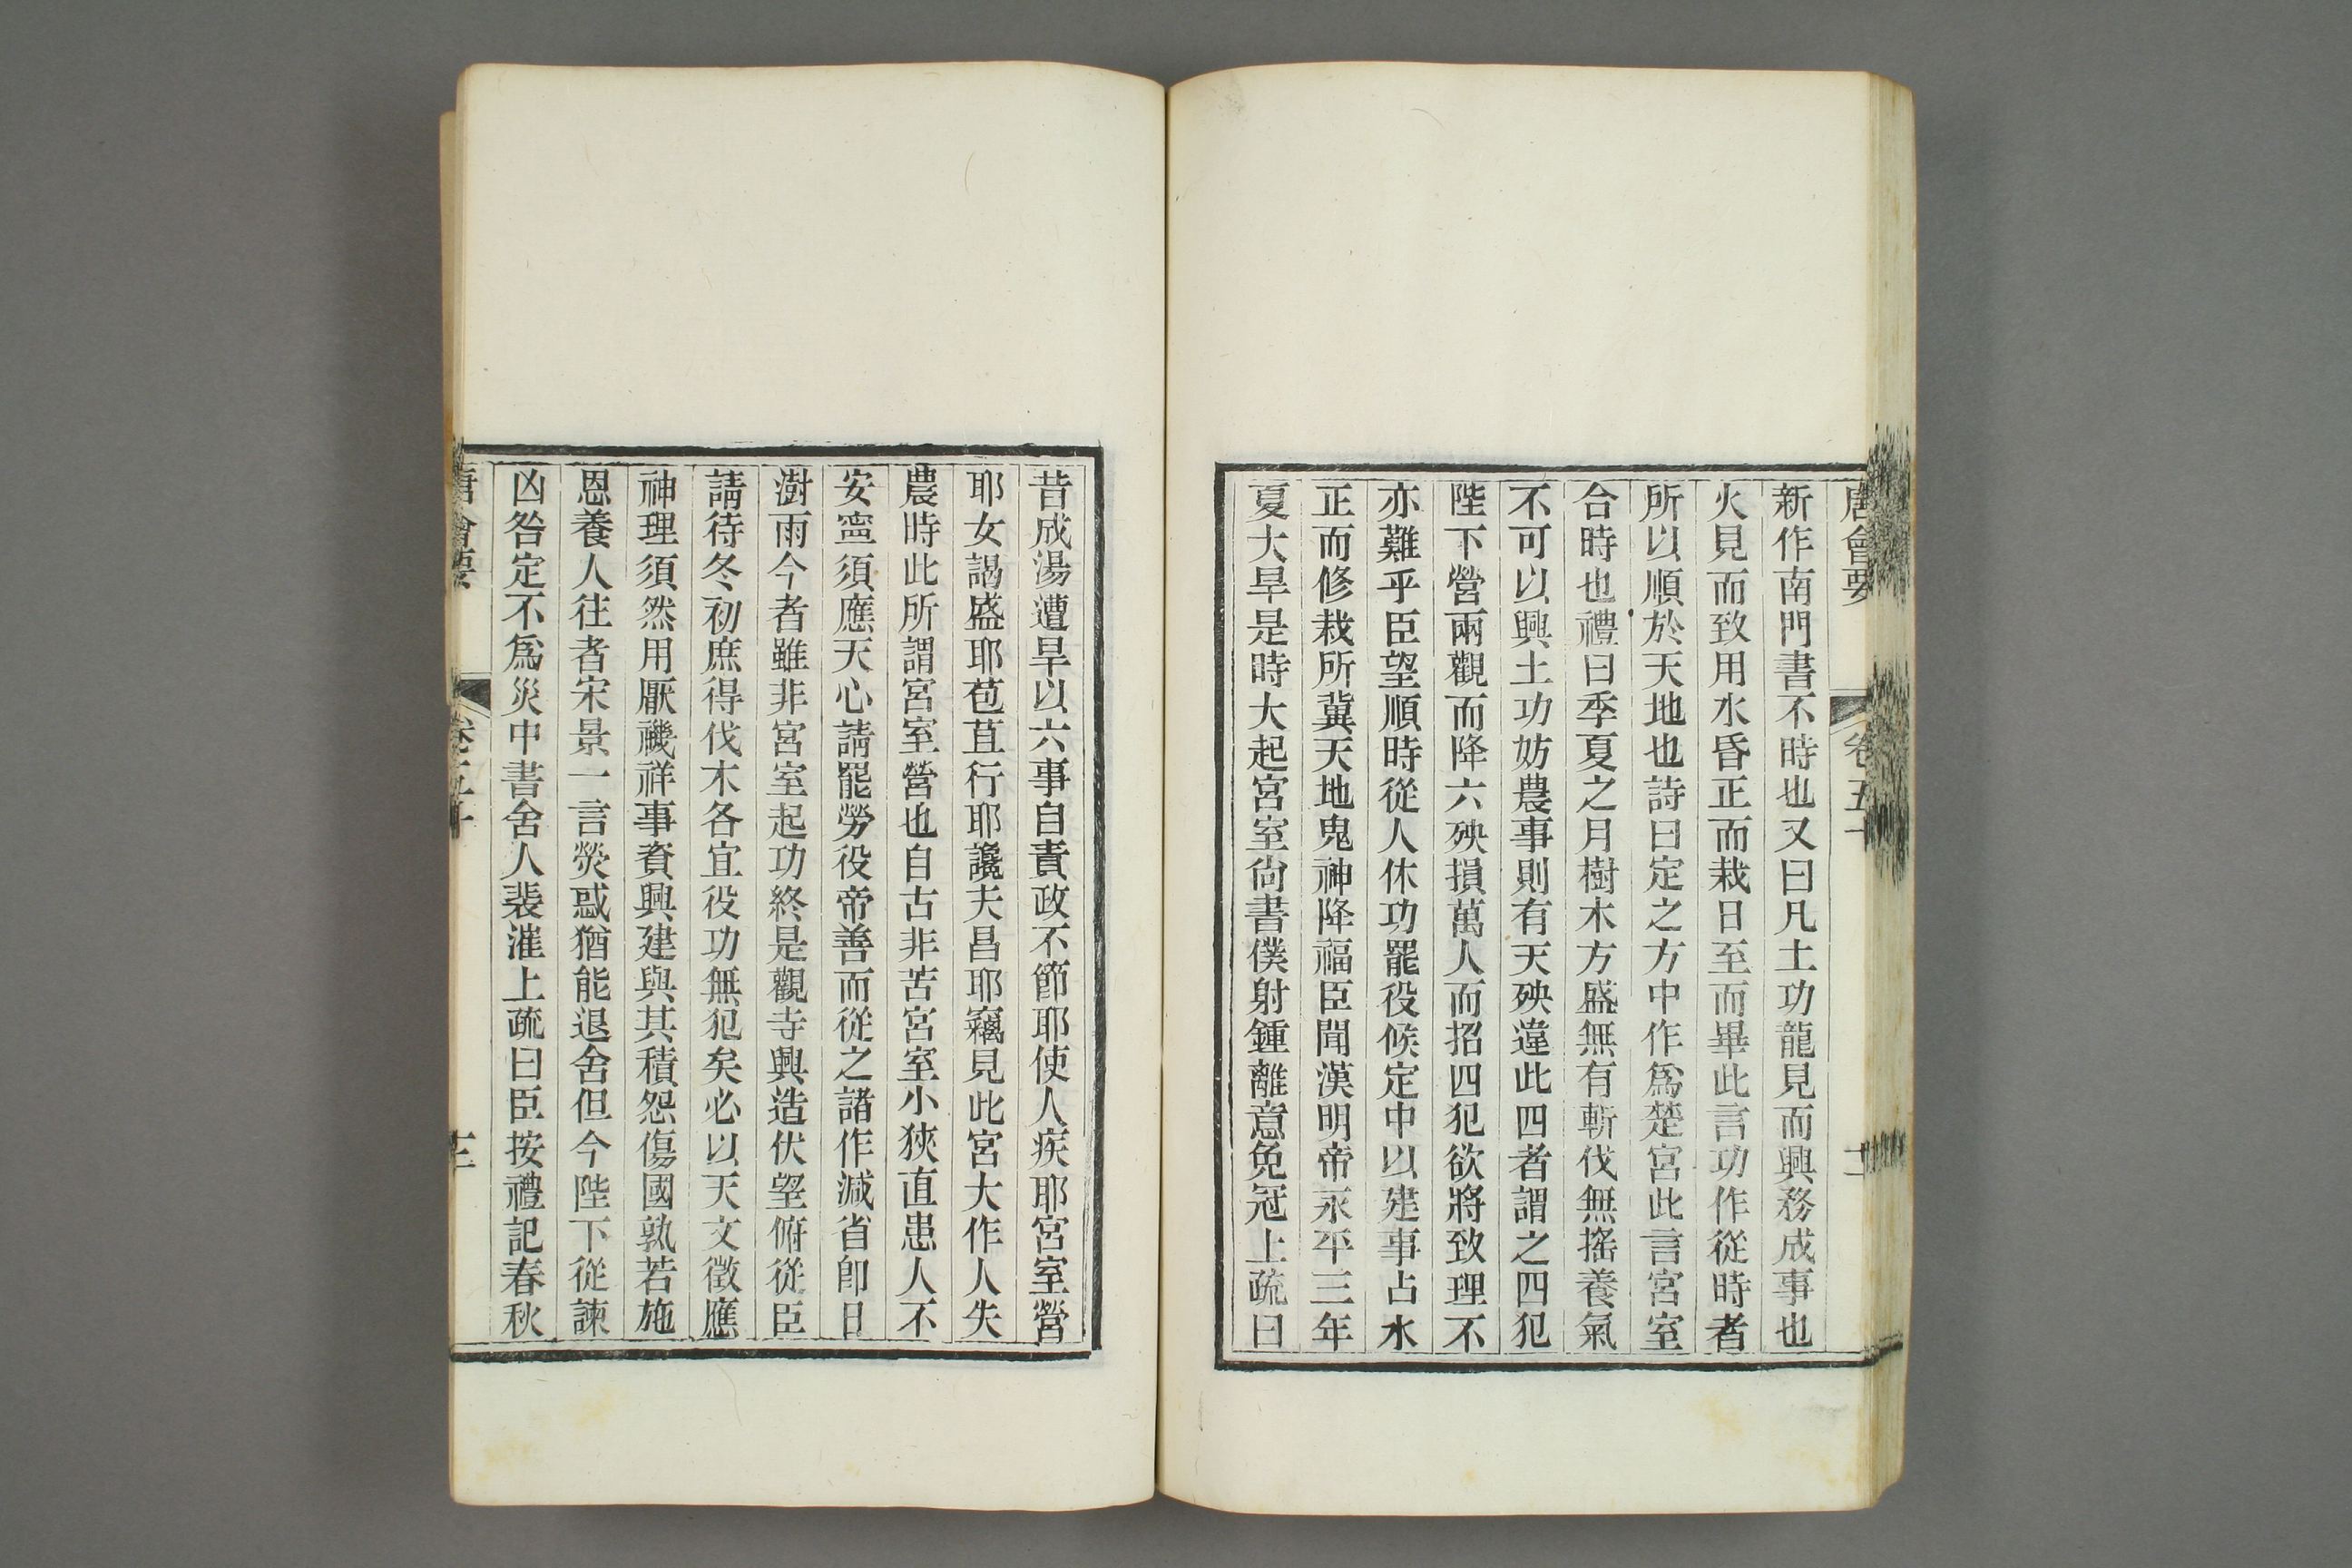 唐會要 卷五十 十一
新作南門書不時也又曰凡土功龍見而興務成事也
火見而致用水昏正而栽日至而畢此言功作從時者
所以順於天地也詩曰定之方中作爲楚宮此言宮室
合時也禮曰季夏之月樹木方盛無有斬伐無搖養氣
不可以興土功妨農事則有天殃違此四者謂之四犯
陛下營兩觀而降六殃損萬人而招四犯欲將致理不
亦難乎臣望順時從人休功罷役候定中以建事占水
正而修栽所冀天地鬼神降福臣聞漢明帝永平三年
夏大旱是時大起宮室尙書僕射鍾離意免冠上疏曰
昔成湯遭旱以六事自責政不節耶使人疾耶宮室營
耶女謁盛耶苞苴行耶讒夫昌耶竊見此宮大作人失
農時此所謂宮室營也自古非苦宮室小狹直患人不
安寧須應天心請罷勞役帝善而從之諸作減省卽日
澍雨今者雖非宮室起功終是觀寺興造伏望俯從臣
請待冬初庶得伐木各宜役功無犯矣必以天文徵應
神理須然用厭禨祥事資興建與其積怨傷國孰若施
恩養人往者宋景一言熒惑猶能退舍但今陛下從諫
凶咎定不爲災中書舍人裴漼上疏曰臣按禮記春秋
唐會要 卷五十 十二